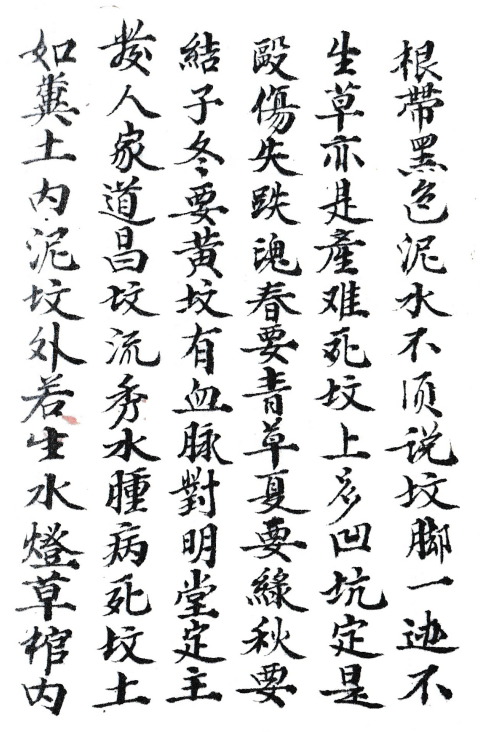 根帶黑色泥水不须说坟脚一边不
生草亦是產难死坟上多凹坑定是
毆傷失跌魂春要青草夏要綠秋要
結子冬要黃坟有血脉對明堂定主
發人家道昌坟流秀水腫病死坟土
如糞土内泥坟外若生水燈草棺内